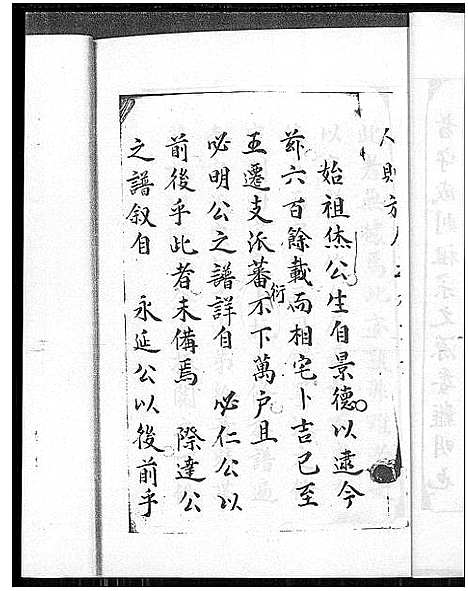 人則方
始祖杰公生自景德以逮今
茲六百餘載而相宅卜吉已至
五遷支派蕃衍不下萬戶且
必明公之譜詳自 必仁公以
前後乎此者未備焉 際達公
之譜叙自 永延公以後前乎